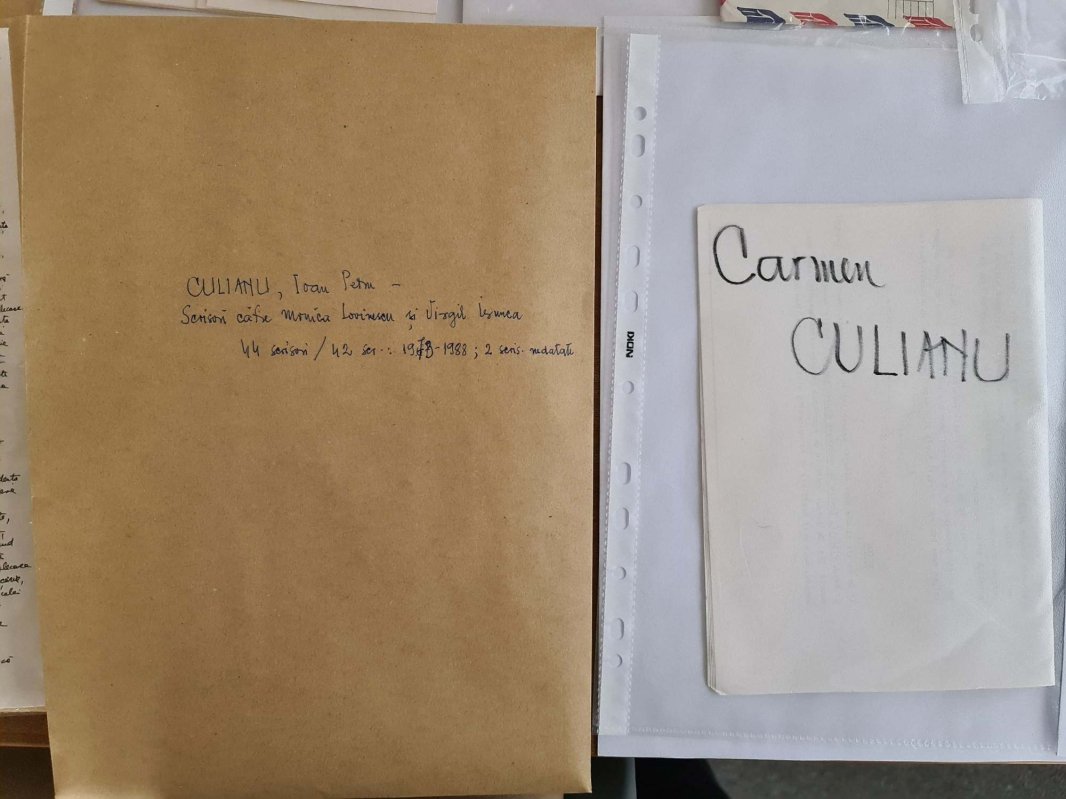 CULIANU, Ioan Petru –
Scrisori către Monica Lovinescu și Virgil Ierunca
44 scrisori / 42 scr.: 1973-1988; 2 scris. nedatate
NOKI
Carmen
CULIANU